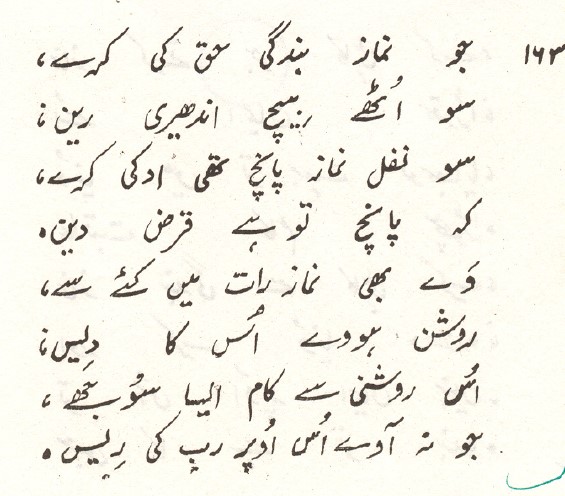 ۱۶۳ جو نماز بندگی حق کی کرے،
سو اُٹھے ریبیچ اندھیری رین؛
سو نفل نماز پانچ تھی ادکی کرے،
کہ پانچ تو ہے قرض دین۔
وَے بھی نماز رات میں کئے سے،
روشن ہووے اُس کا دِلیں؛
اُس روشنی سے کام ایسا سوُجھے،
جو نہ آوے اُس اُوپر رب کی رِیس۔